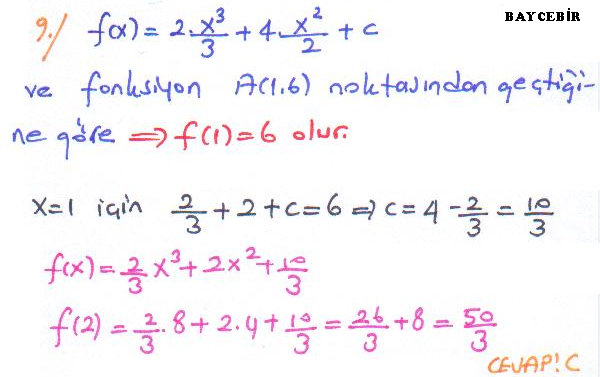 BAYCEBİR
9./ f(x) = 2.x³/3 + 4.x²/2 + c
ve fonksiyon A(1.6) noktasından geçtiği-
ne göre ⇒ f(1)=6 olur.
x=1 için 2/3 + 2 + c = 6 ⇒ c = 4 - 2/3 = 10/3
f(x) = 2/3 x³ + 2x² + 10/3
f(2) = 2/3 . 8 + 2.4 + 10/3 = 26/3 + 8 = 50/3
CEVAP! C